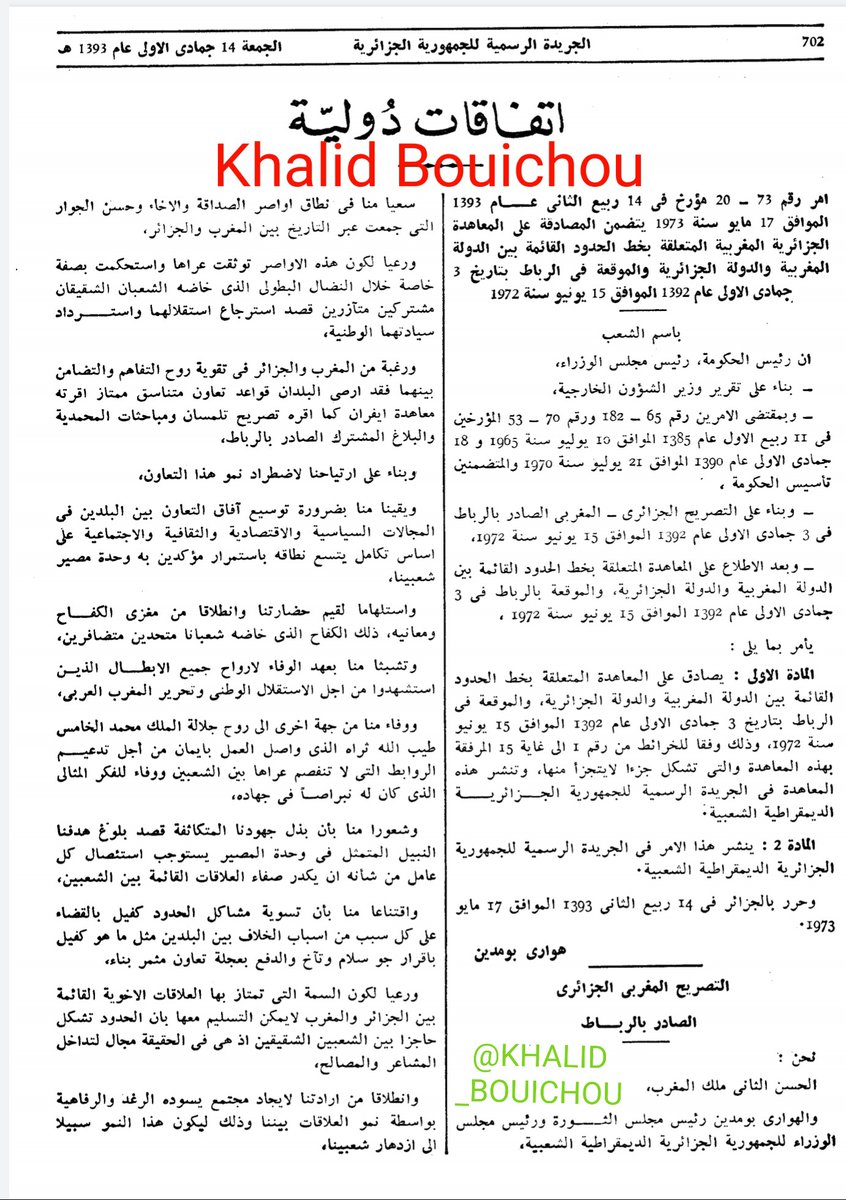 702
الجريدة الرسمية للجمهورية الجزائرية
الجمعة 14 جمادى الاولى عام 1393 هـ
اتفاقات دُوليّة
Khalid Bouichou
امر رقم 73 ــ 20 مؤرخ فى 14 ربيع الثانى عـــــام 1393
الموافق 17 مايو سنة 1973 يتضمن المصادقة على المعاهدة
الجزائرية المغربية المتعلقة بخط الحدود القائمة بين الدولة
المغربية والدولة الجزائرية والموقعة فى الرباط بتاريخ 3
جمادى الاولى عام 1392 الموافق 15 يونيو سنة 1972
باسم الشعب
ان رئيس الحكومة، رئيس مجلس الوزراء،
ــ بناء على تقرير وزير الشؤون الخارجية،
ــ وبمقتضى الامرين رقم 65 ــ 182 ورقم 70 ــ 53 المؤرخين
فى 11 ربيع الاول عام 1385 الموافق 10 يوليو سنة 1965 و 18
جمادى الاولى عام 1390 الموافق 21 يوليو سنة 1970 والمتضمنين
تأسيس الحكومة ،
ــ وبناء على التصريح الجزائرى ــ المغربى الصادر بالرباط
فى 3 جمادى الاولى عام 1392 الموافق 15 يونيو سنة 1972،
ــ وبعد الاطلاع على المعاهدة المتعلقة بخط الحدود القائمة بين
الدولة المغربية والدولة الجزائرية، والموقعة بالرباط فى 3
جمادى الاولى عام 1392 الموافق 15 يونيو سنة 1972 ،
يأمر بما يلى :
المادة الاولى : يصادق على المعاهدة المتعلقة بخط الحدود
القائمة بين الدولة المغربية والدولة الجزائرية، والموقعة فى
الرباط بتاريخ 3 جمادى الاولى عام 1392 الموافق 15 يونيو
سنة 1972، وذلك وفقا للخرائط من رقم 1 الى غاية 15 المرفقة
بهذه المعاهدة والتى تشكل جزءا لايتجزأ منها، وتنشر هذه
المعاهدة فى الجريدة الرسمية للجمهورية الجـــزائريـــــة
الديمقراطية الشعبية.
المادة 2 : ينشر هذا الامر فى الجريدة الرسمية للجمهورية
الجزائرية الديمقراطية الشعبية.
وحرر بالجزائر فى 14 ربيع الثانى 1393 الموافق 17 مايو
1973.
هوارى بومدين
التصريح المغربى الجزائرى
الصادر بالربـــاط
نحن :
@KHALID
_BOUICHOU
الحسن الثانى ملك المغرب،
والهوارى بومدين رئيس مجلس الثـــورة ورئيس مجلس
الوزراء للجمهورية الجزائرية الديمقراطية الشعبية،
سعيا منا فى نطاق اواصر الصداقة والاخاء وحسن الجوار
التى جمعت عبر التاريخ بين المغرب والجزائر،
ورعيا لكون هذه الاواصر توثقت عراها واستحكمت بصفة
خاصة خلال النضال البطولى الذى خاضه الشعبان الشقيقان
مشتركين متآزرين قصد استرجاع استقلالهما واستـــرداد
سيادتهما الوطنية،
ورغبة من المغرب والجزائر فى تقوية روح التفاهم والتضامن
بينهما فقد ارصى البلدان قواعد تعاون متناسق ممتاز اقرته
معاهدة ايفران كما اقره تصريح تلمسان ومباحثات المحمدية
والبلاغ المشترك الصادر بالرباط،
وبناء على ارتياحنا لاضطراد نمو هذا التعاون،
ويقينا منا بضرورة توسيع آفاق التعاون بين البلدين فى
المجالات السياسية والاقتصادية والثقافية والاجتماعية على
اساس تكامل يتسع نطاقه باستمرار مؤكدين به وحدة مصير
شعبينا،
واستلهاما لقيم حضارتنا وانطلاقا من مغزى الكفـــاح
ومعانيه، ذلك الكفاح الذى خاضه شعبانا متحدين متضافرين،
وتشبثا منا بعهد الوفاء لارواح جميع الابطـــال الذيـــن
استشهدوا من اجل الاستقلال الوطنى وتحرير المغرب العربى،
ووفاء منا من جهة اخرى الى روح جلالة الملك محمد الخامس
طيب الله ثراه الذى واصل العمل بايمان من أجل تدعيـــم
الروابط التى لا تنفصم عراها بين الشعبين ووفاء للفكر المثالى
الذى كان له نبراصـــا فى جهاده،
وشعورا منا بأن بذل جهودنا المتكاثفة قصد بلوغ هدفنا
النبيل المتمثل فى وحدة المصير يستوجب استئصال كل
عامل من شانه ان يكدر صفاء العلاقات القائمة بين الشعبين،
واقتناعا منا بأن تسوية مشاكل الحدود كفيل بالقضاء
على كل سبب من اسباب الخلاف بين البلدين مثل ما هو كفيل
باقرار جو سلام وتآخ والدفع بعجلة تعاون مثمر بناء،
ورعيا لكون السمة التى تمتاز بها العلاقات الاخوية القائمة
بين الجزائر والمغرب لايمكن التسليم معها بان الحدود تشكل
حاجزا بين الشعبين الشقيقين اذ هى فى الحقيقة مجال لتداخل
المشاعر والمصالح،
وانطلاقا من ارادتنا لايجاد مجتمع يسوده الرغد والرفاهية
بواسطة نمو العلاقات بيننا وذلك ليكون هذا النمو سبيلا
الى ازدهار شعبينا،